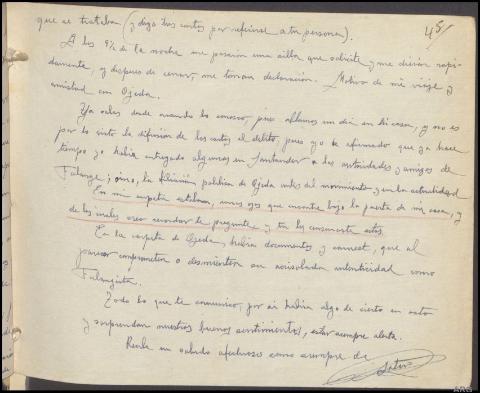 que se trataban (y digo tus cartas por referirse a tu persona).
45/
A las 9½ de la noche me pasaron una silla que solicité y me dieron rapi-
damente, y despues de cenar, me toman declaración. Motivo de mi viaje y
amistad con Ojeda.
Ya sabes desde cuando lo conozco, pues estamos un dia en tu casa, y no es
por lo visto la difusion de las cartas el delito, pues yo he afirmado que ya hace
tiempo yo habia entregado algunas en Santander a las autoridades y amigos de
Falange; sino, la filiación politica de Ojeda antes del movimiento y en la actualidad
En mi carpeta estaban, unas ojas que encontre bajo la puerta de mi casa, y
de las cuales creo recordar te pregunté, y tu las conservaste
En la carpeta de Ojeda, habia documentos y carnet, que al
parecer comprometen o desmienten su acrisolada autenticidad como
Falangista.
Todo lo que te comunico, por si habia algo de cierto en esto
y sorprendan nuestros buenos sentimientos, estar siempre alerta.
Recibe un saludo afectuoso como siempre de
ARG